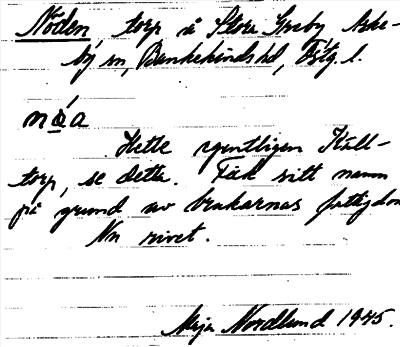 Nöden, torp å Stora Greby Aske-
by sn, Bankekinds hd, Östg. l.
nǿa
Hette egentligen Käll-
torp, se detta. Fick sitt namn
på grund av brukarnas fattigdom
Nu rivet.
Maja Nordlund 1945.